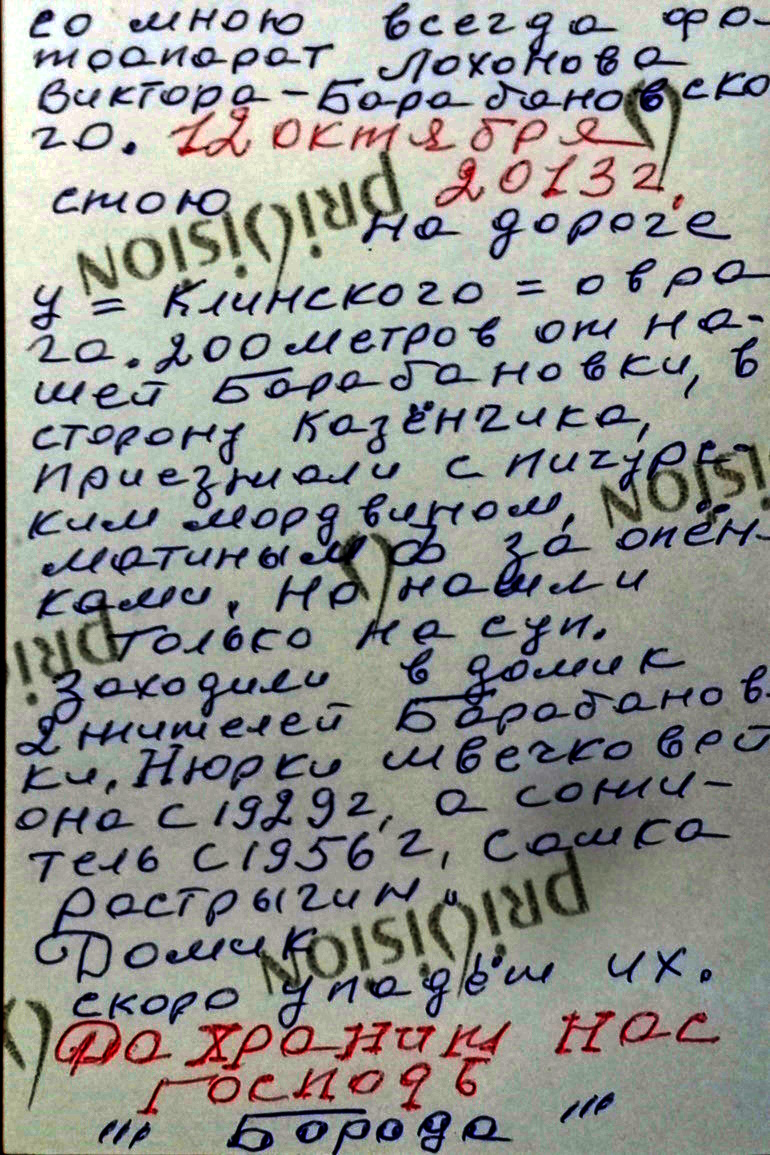 со мною всегда фо-
тоапарат Лохонова
Виктора-Барабановско
го. 12 октября
2013г.
стою
на дороге
у = Клинского = овра
га. 200 метров от на-
шей Барабановки, в
сторону Казёнчика,
Приезжали с пичурс-
ким мордвином,
матиным Ф за опён-
ками, но нашли
только на суп.
Заходили в домик
2 жителей Барабанов
ки, Нюрки швечковой
она с 1929г, а сожи-
тель с 1956 г, сашка
растрыгин "
Домик
скоро упадёт их.
Да храним нас
Господь
"' Борода "'
priVision
priVision
priVision